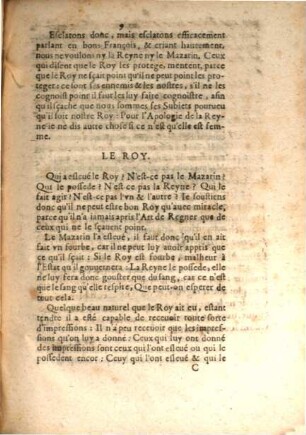 9
Esclatons donc, mais esclatons efficacement
parlant en bons François, & criant hautement,
nous ne voulons ny la Reyne ny le Mazarin, Ceux
qui disent que le Roy les protege, mentent, parce
que le Roy ne sçait point qu'il ne peut point les pro-
teger: ce sont ses ennemis & les nostres, s'il ne les
cognoist point il faut les luy faire cognoistre, afin
qu'il sçache que nous sommes ses Subiets pourueu
qu'il soit nostre Roy: Pour l'Apologie de la Rey-
ne ie ne dis autre chose si ce n'est qu'elle est fem-
me.
LE ROY.
Qui a esleué le Roy? N'est-ce pas le Mazarin?
Qui le possede? N'est-ce pas la Reyne? Qui le
fait agir? N'est-ce pas l'vn & l'autre? Ie soustiens
donc qu'il ne peut estre bon Roy qu'auec miracle,
parce qu'il n'a iamais apris l'Art de Regner que de
ceux qui ne le sçauent point.
Le Mazarin l'a esleué, il faut donc qu'il en ait
fait vn fourbe, car il ne peut luy auoir appris que
ce qu'il sçait: Si le Roy est fourbe, malheur à
l'Estat qu'il gouuernera: La Reyne le possede, elle
ne luy fera donc gouster que du sang, car ce n'est
que le sang qu'elle respire, Que peut-on esperer de
tout cela.
Quelque beau naturel que le Roy ait eu, estant
tendre il a esté capable de receuoir toute sorte
d'impressions: Il n'a peu receuoir que les impres-
sions qu'on luy a donné; Ceux qui luy ont donné
des impressions sont ceux qui l'ont esleué ou qui le
possedent encor; Ceuy qui l'ont esleué & qui le
C